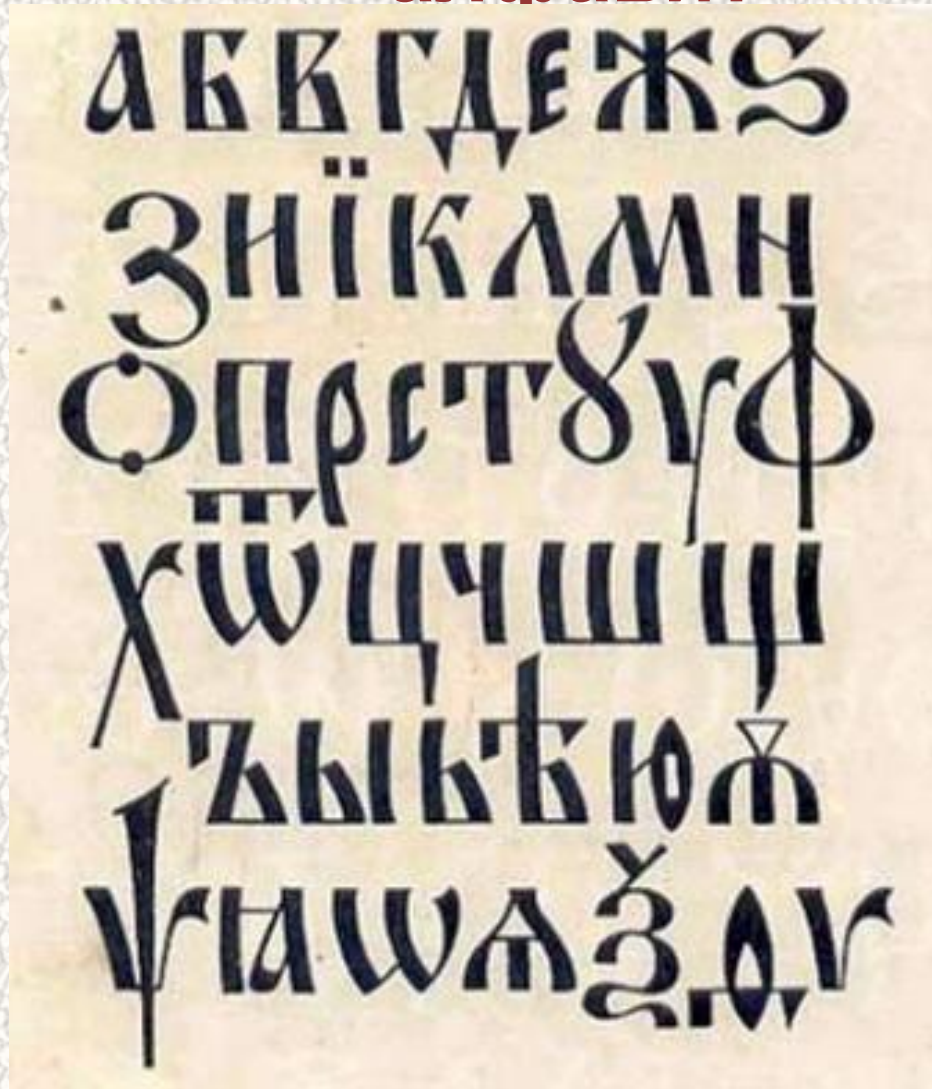 А Б В Г Д Е Ж Ѕ
З И Ї К Л М Н
О П Р С Т Ꙋ Ѵ Ф
Х Ѿ Ц Ч Ш Щ
Ъ Ы Ь Ѣ Ю Ѫ
Ѱ Ꙗ Ѡ Ѧ Ѯ Ѳ Ѵ